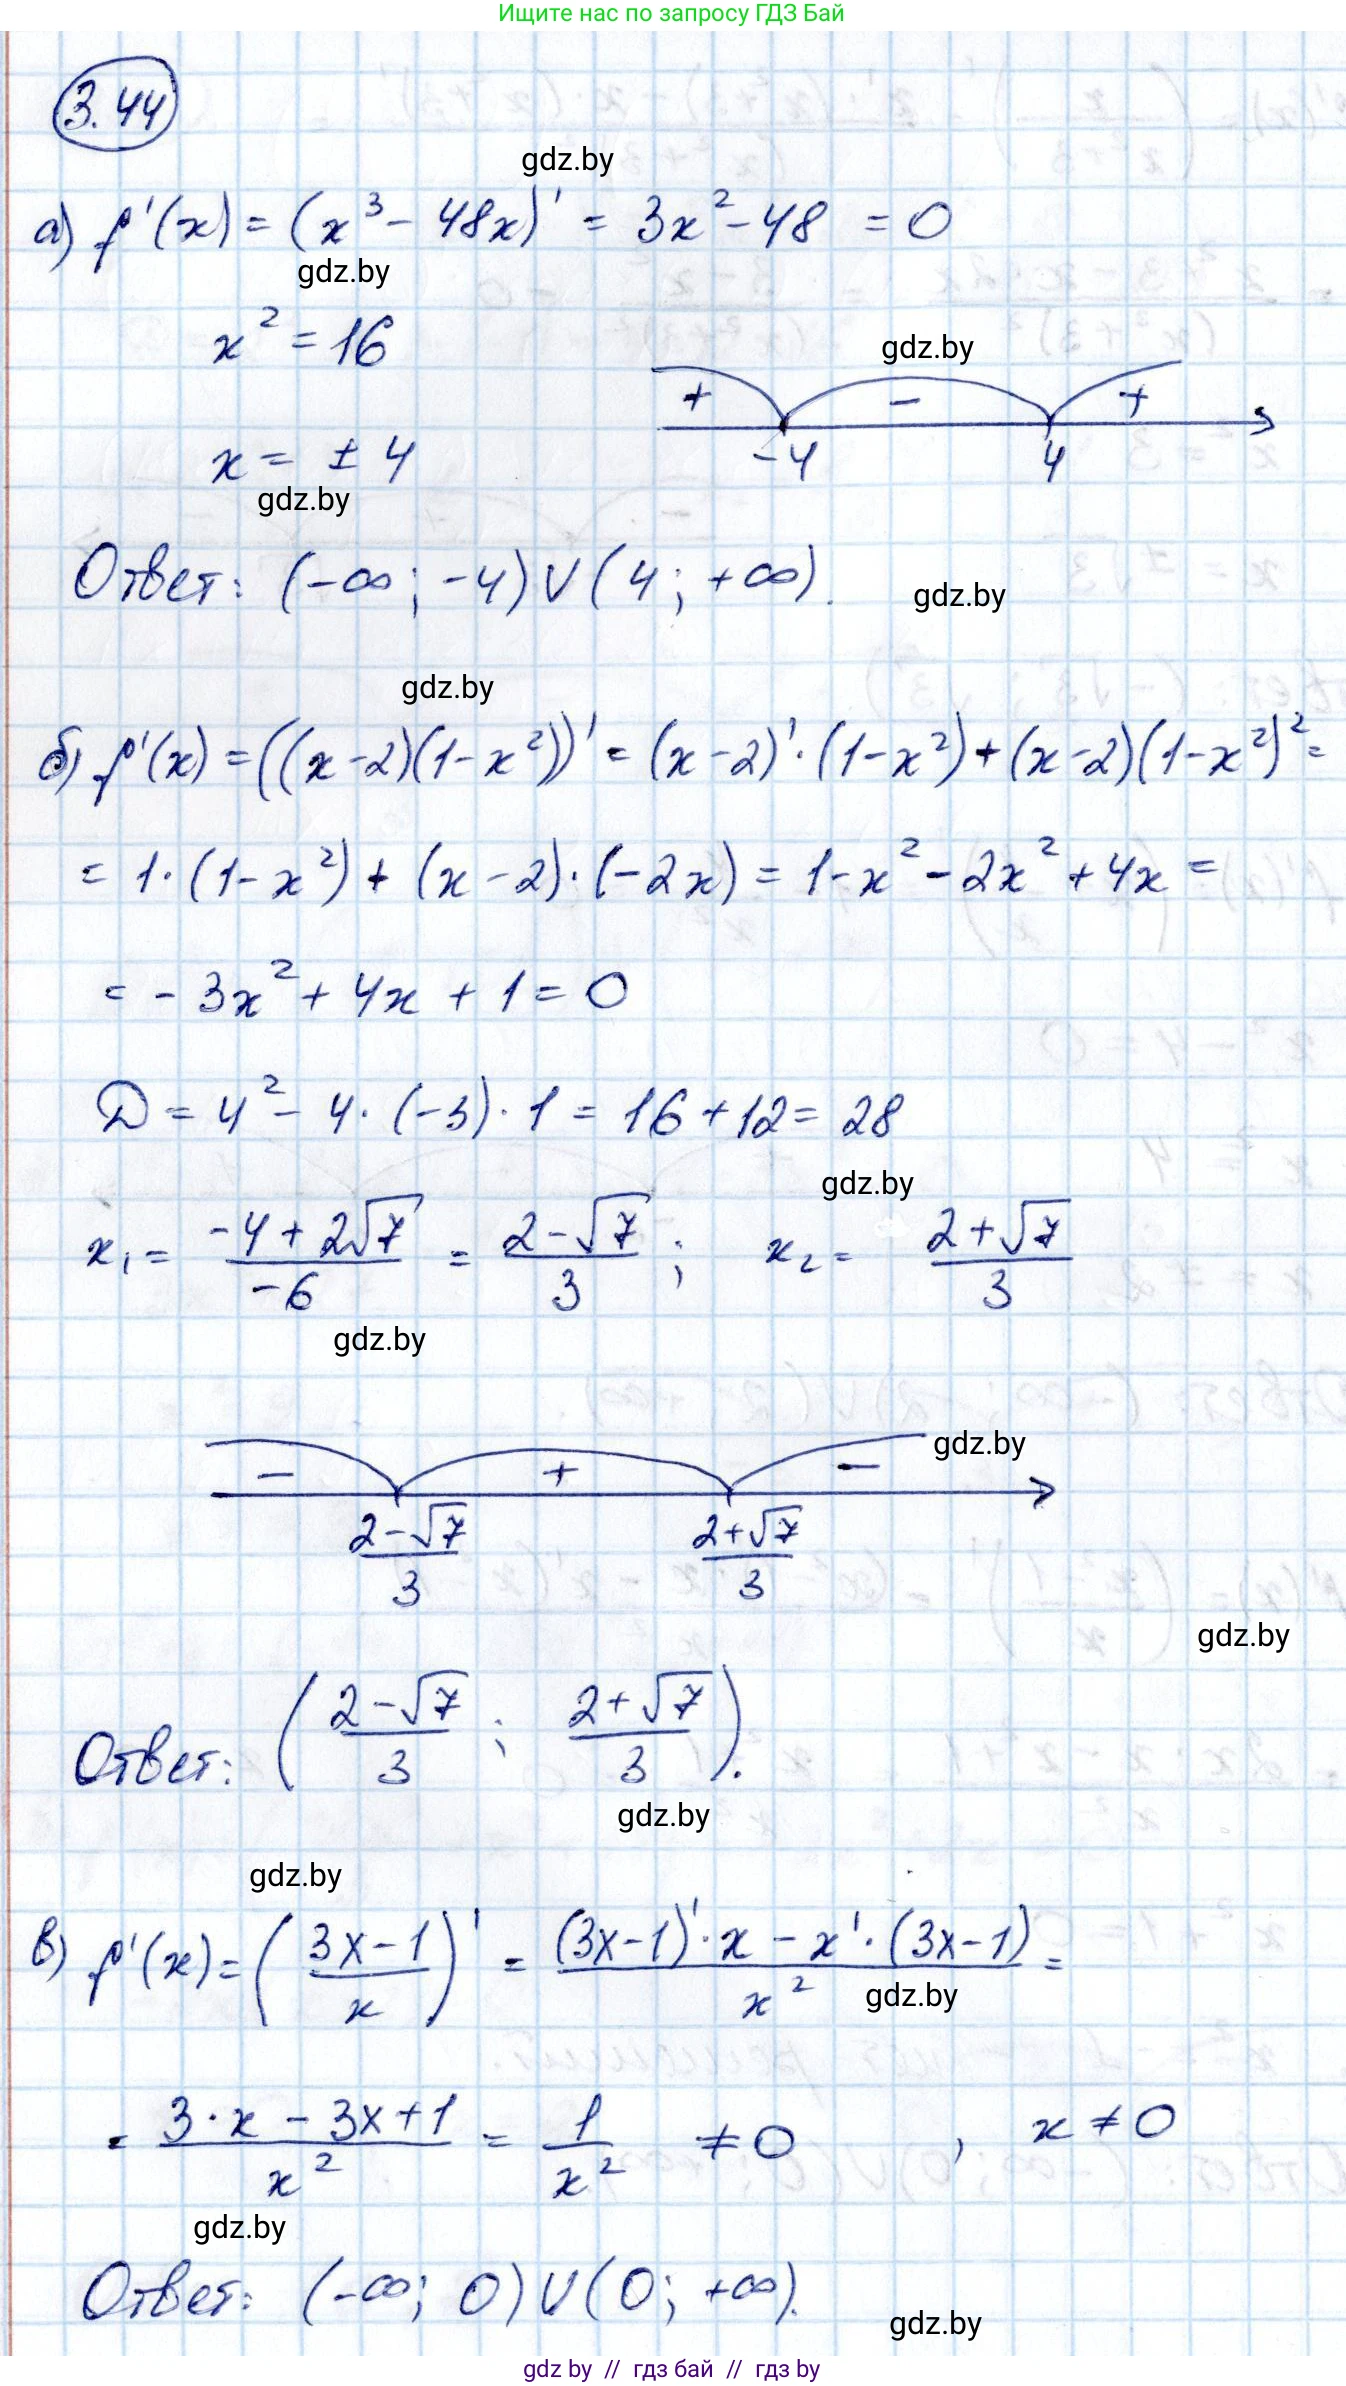 Ищите нас по запросу ГДЗ Бай
3.44
gdz.by
а) f'(x) = (x³ - 48x)' = 3x² - 48 = 0
gdz.by
x² = 16
gdz.by
+ - +
x = ± 4
-4 4
gdz.by
Ответ: (-∞; -4) ∪ (4; +∞).
gdz.by
gdz.by
б) f'(x) = ((x-2)(1-x²))' = (x-2)'·(1-x²)+(x-2)(1-x²)² =
= 1·(1-x²) + (x-2)·(-2x) = 1-x²-2x²+4x =
= -3x² + 4x + 1 = 0
D = 4² - 4·(-3)·1 = 16+12 = 28
gdz.by
x₁ = (-4+2√7)/(-6) = (2-√7)/3 ; x₂ = (2+√7)/3
gdz.by
gdz.by
- + -
(2-√7)/3 (2+√7)/3
gdz.by
Ответ: ((2-√7)/3 ; (2+√7)/3).
gdz.by
gdz.by
в) f'(x) = ((3x-1)/x)' = ((3x-1)'·x - x'·(3x-1))/x² =
gdz.by
= (3·x - 3x+1)/x² = 1/x² ≠ 0 , x ≠ 0
gdz.by
Ответ: (-∞; 0) ∪ (0; +∞).
gdz.by
gdz by // гдз бай // gdz by